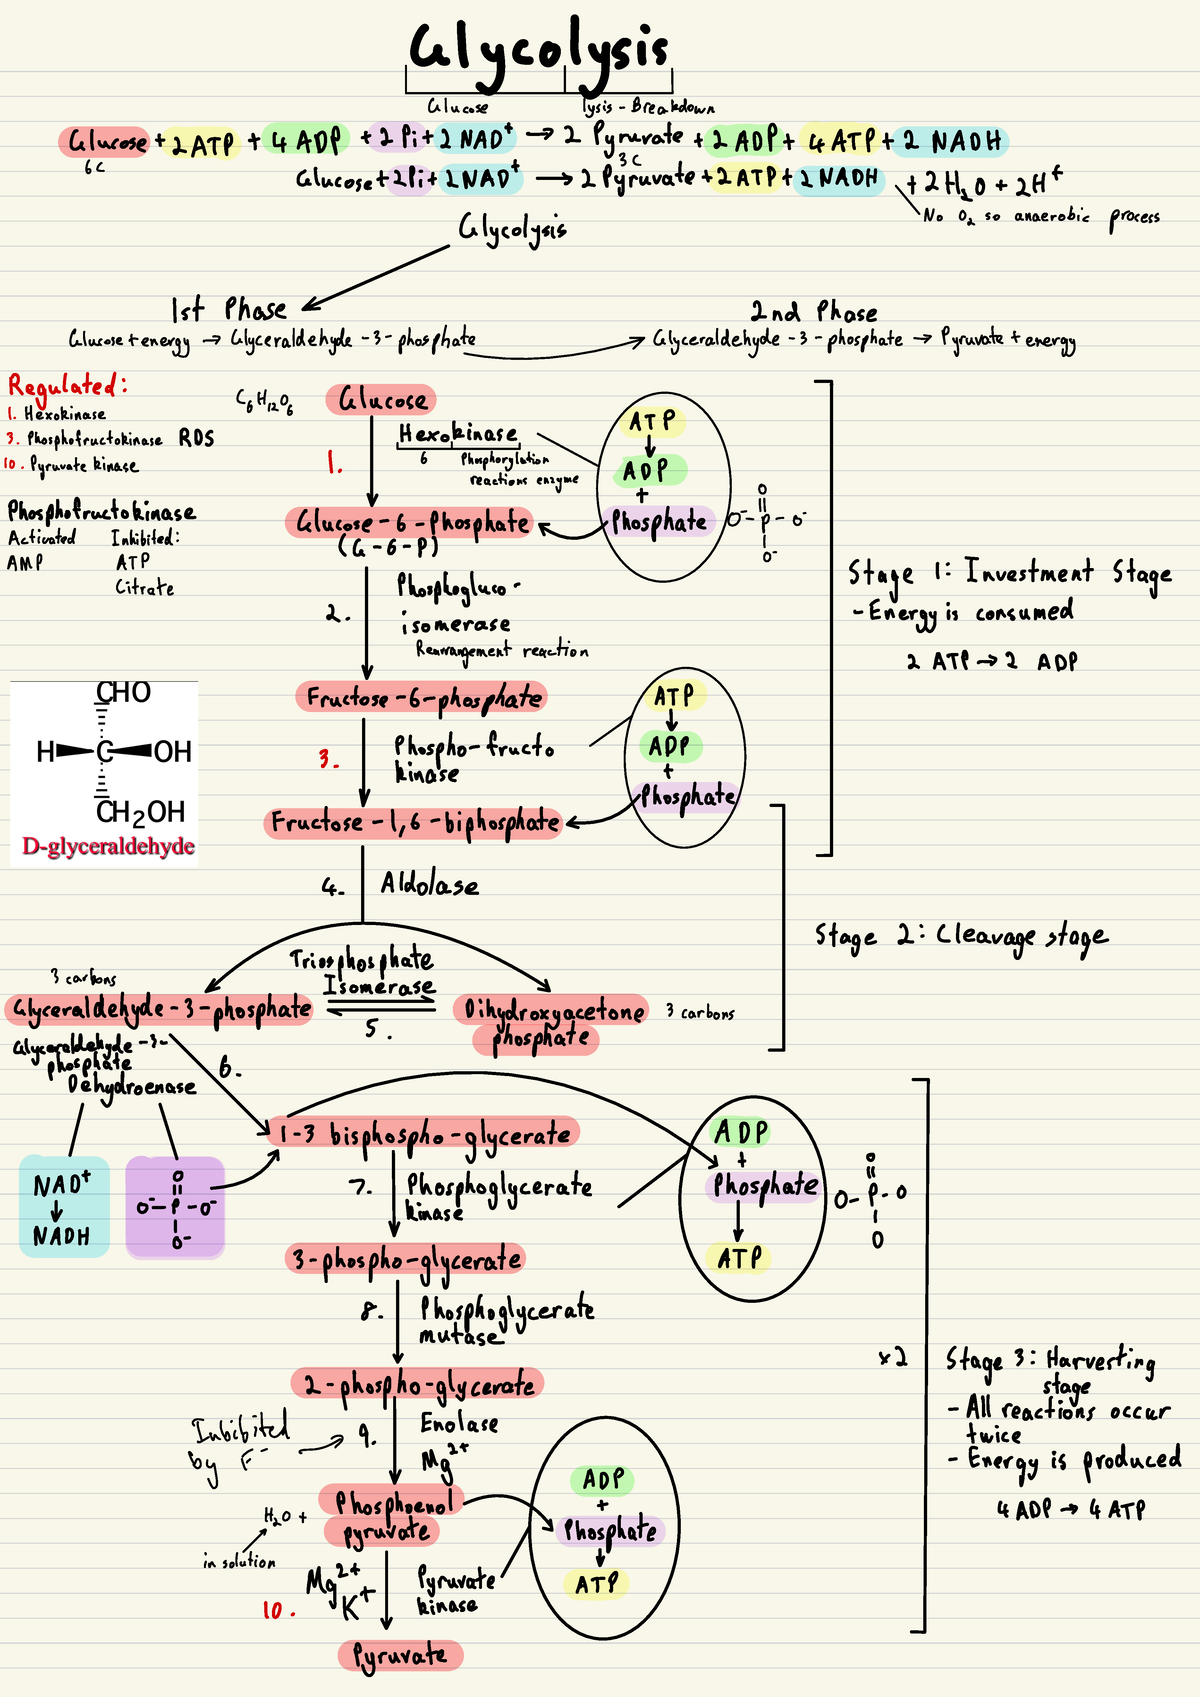 Glycolysis
Glucose lysis - Breakdown
Glucose + 2 ATP + 4 ADP + 2 Pi + 2 NAD⁺ → 2 Pyruvate + 2 ADP + 4 ATP + 2 NADH
6C 3C
Glucose + 2Pi + 2NAD⁺ → 2 Pyruvate + 2 ATP + 2 NADH + 2H₂O + 2H⁺
No O₂ so anaerobic process
Glycolysis
1st Phase
Glucose + energy → Glyceraldehyde - 3 - phosphate
2nd Phase
Glyceraldehyde - 3 - phosphate → Pyruvate + energy
Regulated:
1. Hexokinase
3. Phosphofructokinase RDS
10. Pyruvate kinase
Phosphofructokinase
Activated Inhibited:
AMP ATP
Citrate
C₆H₁₂O₆ Glucose
1.
Hexokinase
6 Phosphorylation
reactions enzyme
ATP
ADP
+
Phosphate
O
O⁻ - P - O⁻
O⁻
Glucose - 6 - Phosphate
(G - 6 - P)
2.
Phosphogluco -
isomerase
Rearrangement reaction
Stage 1: Investment Stage
- Energy is consumed
2 ATP → 2 ADP
Fructose - 6 - phosphate
3.
Phospho - fructo
kinase
ATP
ADP
+
Phosphate
Fructose - 1,6 - biphosphate
CHO
H C OH
CH₂OH
D-glyceraldehyde
4. Aldolase
Stage 2: Cleavage stage
Triosphosphate
Isomerase
5.
3 carbons
Glyceraldehyde - 3 - phosphate
Dihydroxyacetone
phosphate
3 carbons
Glyceraldehyde - 3 -
phosphate
Dehydroenase
6.
NAD⁺
NADH
O
O⁻ - P - O⁻
O⁻
1-3 bisphospho - glycerate
7.
Phosphoglycerate
kinase
ADP
+
Phosphate
ATP
O
O - P - O
O
3-phospho - glycerate
8.
Phosphoglycerate
mutase
2 - phospho - glycerate
Inbibited
by F⁻
9.
Enolase
Mg²⁺
x2
Stage 3: Harvesting
stage
- All reactions occur
twice
- Energy is produced
4 ADP → 4 ATP
H₂O +
in solution
Phosphoenol
pyruvate
ADP
+
Phosphate
ATP
10.
Mg²⁺
K⁺
Pyruvate
kinase
Pyruvate